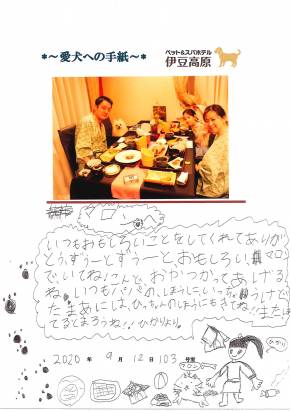 *〜愛犬への手紙〜*
ペット&スパホテル
伊豆高原
マロンへ
いつもおもしろいことをしてくれてありが
とう。ずぅーとずぅーと、おもしろい、マロン
でいてね!こんど、おやつかってあげる
ね。いつも、パパの、しほうに、いっちゃうけど、
たまあには、ひっちゃんのほうにもきてね!また
ひかりより。
2020年 9月 12日 103号室
マロン
ひかり